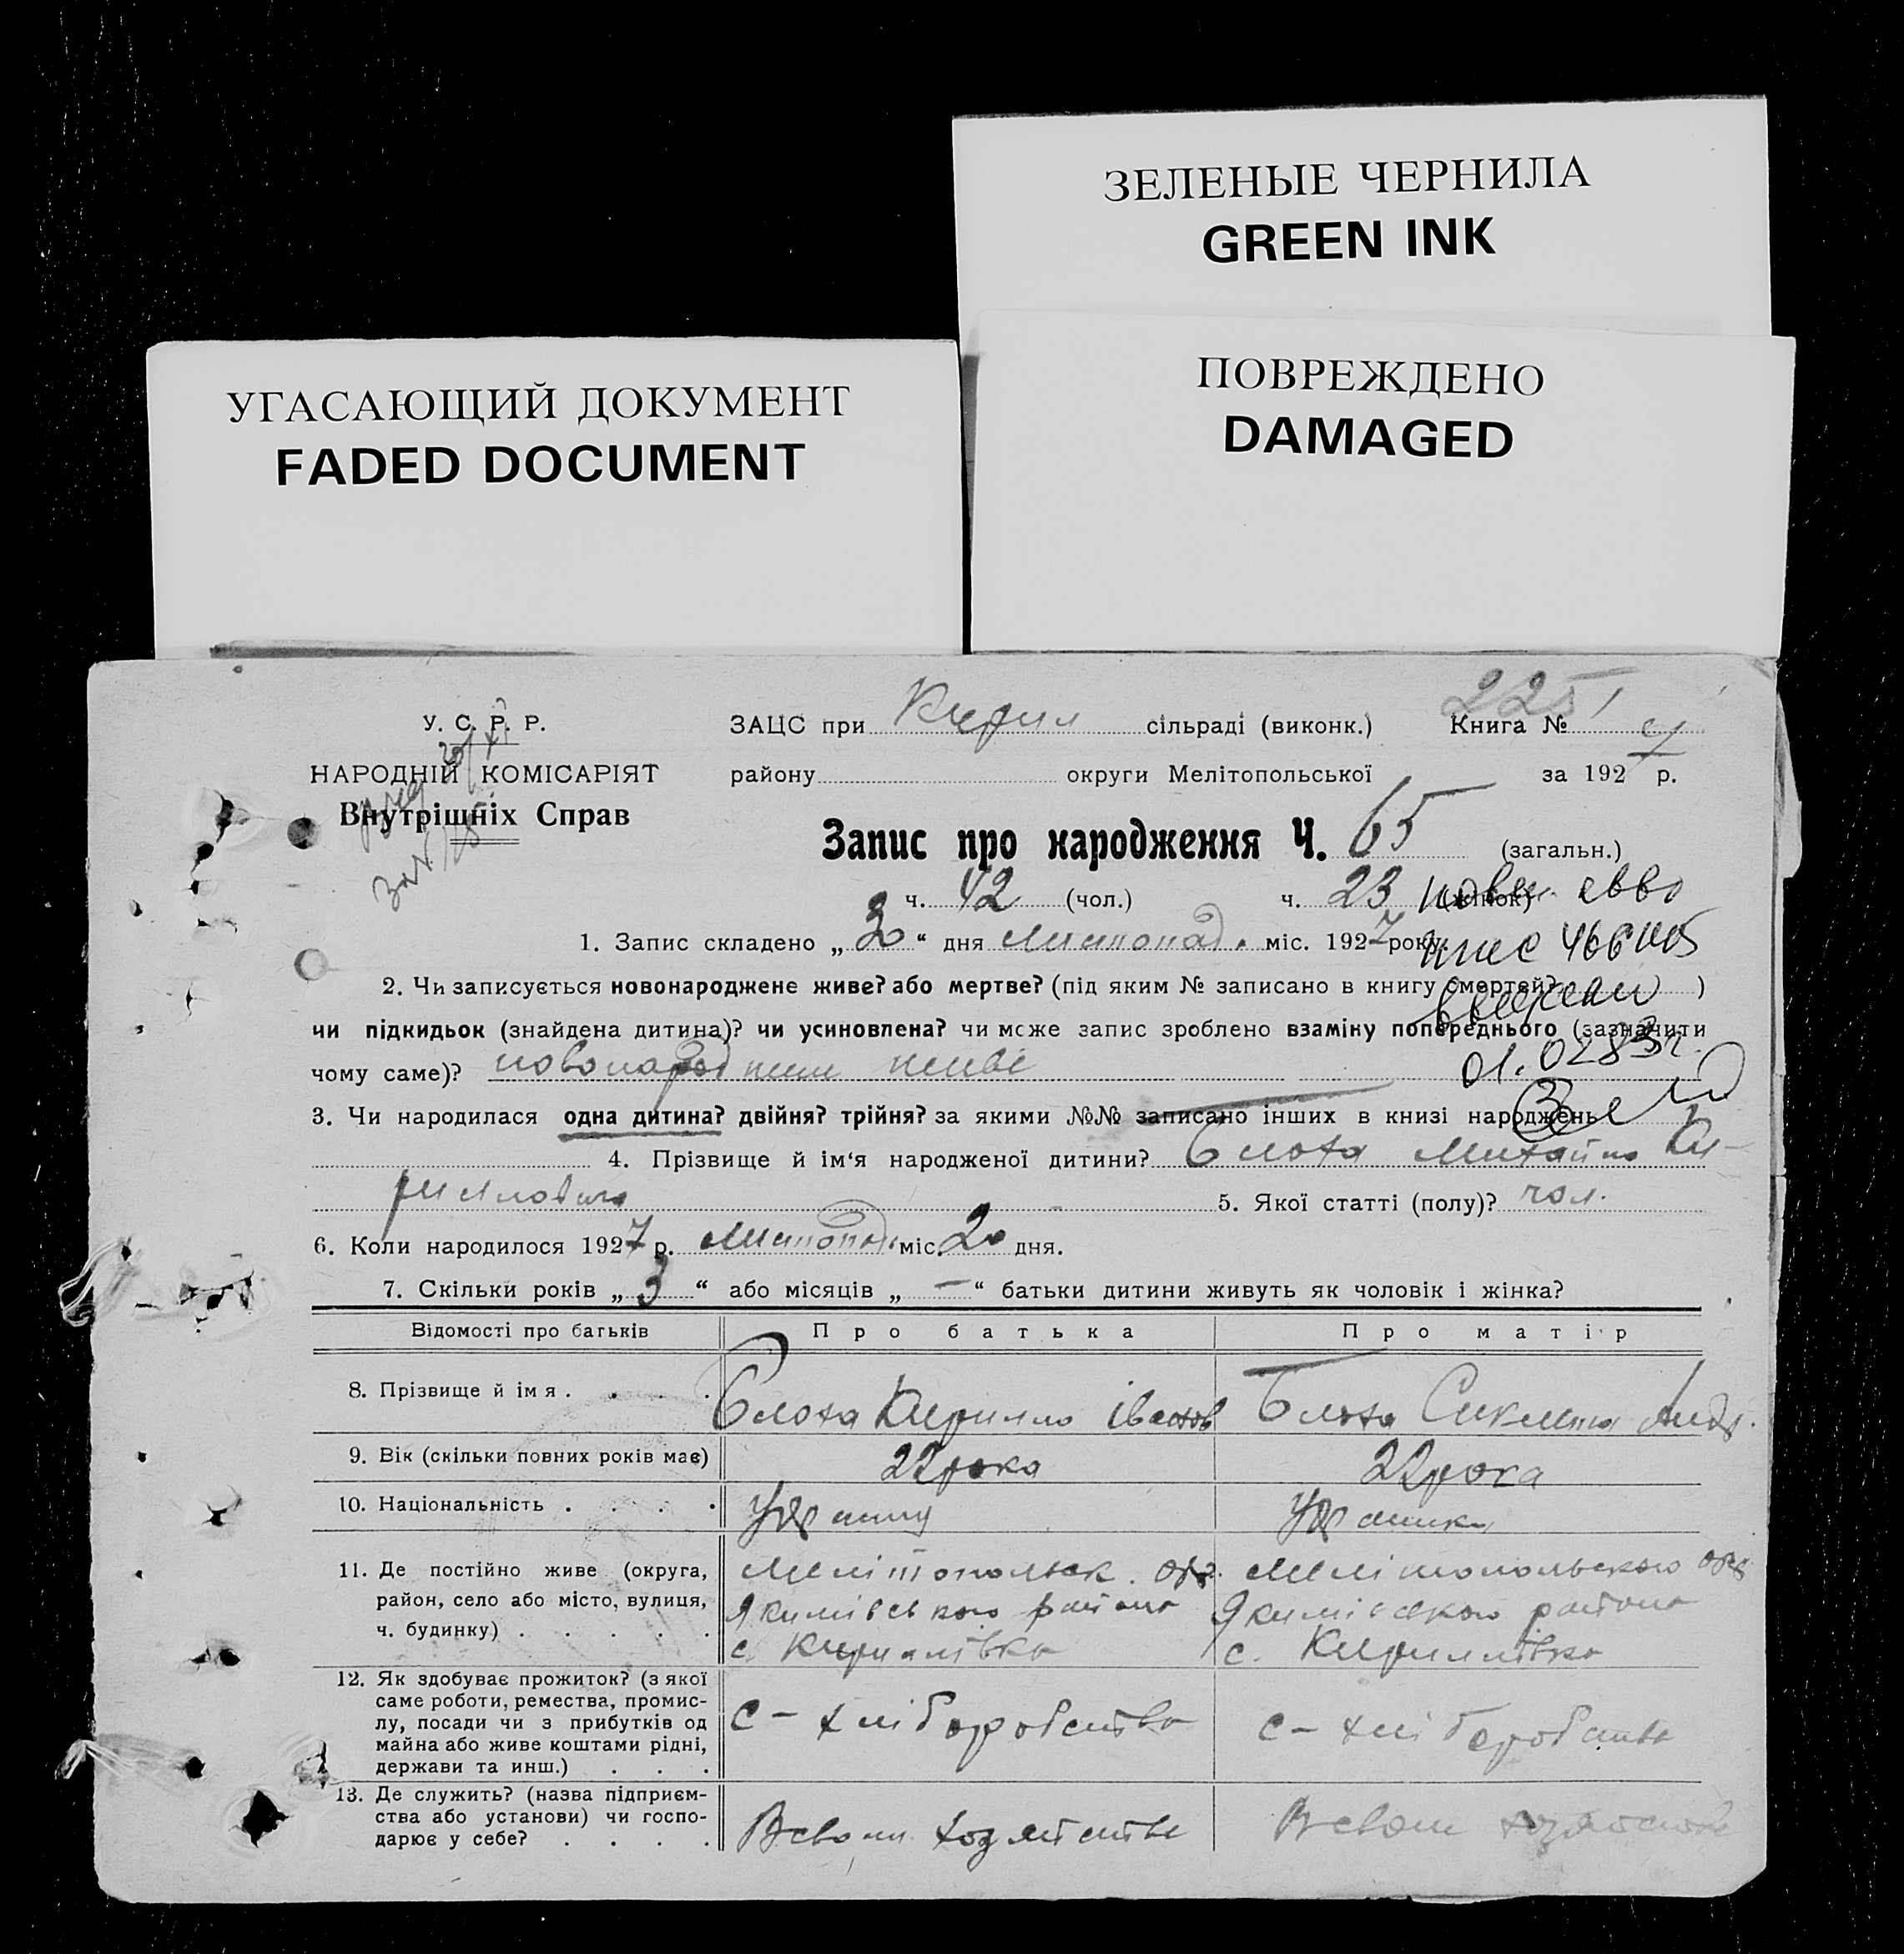 ЗЕЛЕНЫЕ ЧЕРНИЛА
GREEN INK
УГАСАЮЩИЙ ДОКУМЕНТ
FADED DOCUMENT
ПОВРЕЖДЕНО
DAMAGED
225
У. С. Р. Р.
ЗАЦС при Кирил сільраді (виконк.) Книга №
НАРОДНІЙ КОМІСАРІЯТ
району округи Мелітопольської за 1927 р.
Внутрішніх Справ
Запис про народження Ч. 65 (загальн.)
ч. 42 (чол.) ч. 23 (жінок)
1. Запис складено „ “ дня Листопад. міс. 1927 року.
2. Чи записується новонароджене живе? або мертве? (під яким № записано в книгу смертей? )
чи підкидьок (знайдена дитина)? чи усиновлена? чи може запис зроблено взаміну попереднього (зазначити
чому саме)? живе
3. Чи народилася одна дитина? двійня? трійня? за якими №№ записано інших в книзі народжень
4. Прізвище й ім‘я народженої дитини? Блоха Михайло Ки-
риллович 5. Якої статті (полу)? чол.
6. Коли народилося 1927 р. Листопад. міс. 20 дня.
7. Скільки років „ 3 “ або місяців „ — “ батьки дитини живуть як чоловік і жінка?
Відомості про батьків Про батька Про матір
8. Прізвище й імя . . . . Блоха Кирилло Іванов Блоха Андр.
9. Вік (скільки повних років має) 22 рока 22 рока
10. Національність . . . .
11. Де постійно живе (округа, Мелітопольск. окр. Мелітопольського окр
район, село або місто, вулиця, Якимівського района Якимівского района
ч. будинку) . . . . . с. Кириллівка с. Кириллівка
12. Як здобуває прожиток? (з якої
саме роботи, ремества, промис-
лу, посади чи з прибутків од С – хліборобство С – хліборобство
майна або живе коштами рідні,
держави та инш.) . . .
13. Де служить? (назва підприєм-
ства або установи) чи госпо- В своим хозяйстве В своим хозяйстве
дарює у себе? . . . .